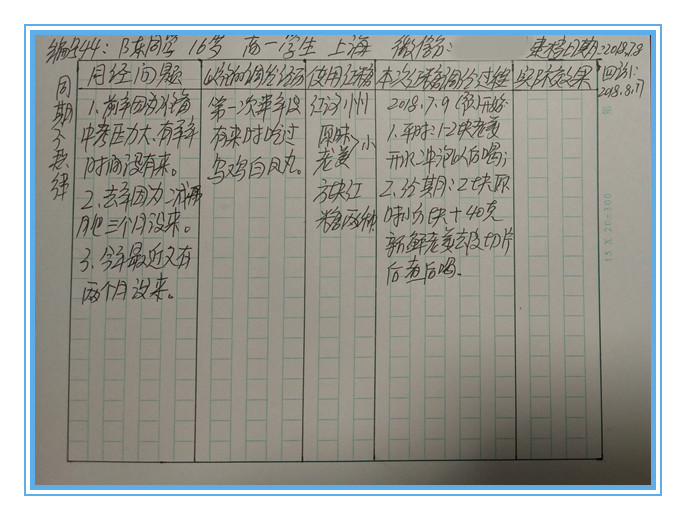 编号44: 陈同学 16岁 高一学生 上海 微信:
来稿日期:2018.7.8
回访:
2018.8.17
周期不规律
月经问题
以往的调分经历
使用红糖
本次红糖调分过程
实际效果
1.前年因为准备
中考压力大、有半年
时间没有来。
2.去年因为二减
月巴三个月没来。
3.今年最近又有
两个月没来。
第一次半年没
有来时吃过
乌鸡白凤丸。
红河州
原味 >小
老姜
方块红
糖两种
2018.7.9(夜)开始:
1.平时:1-2块老姜
开水冲泡以后喝;
2.经期:2块原
味小方块+40克
新鲜老姜去皮切片
后煮后喝。
15×20=300